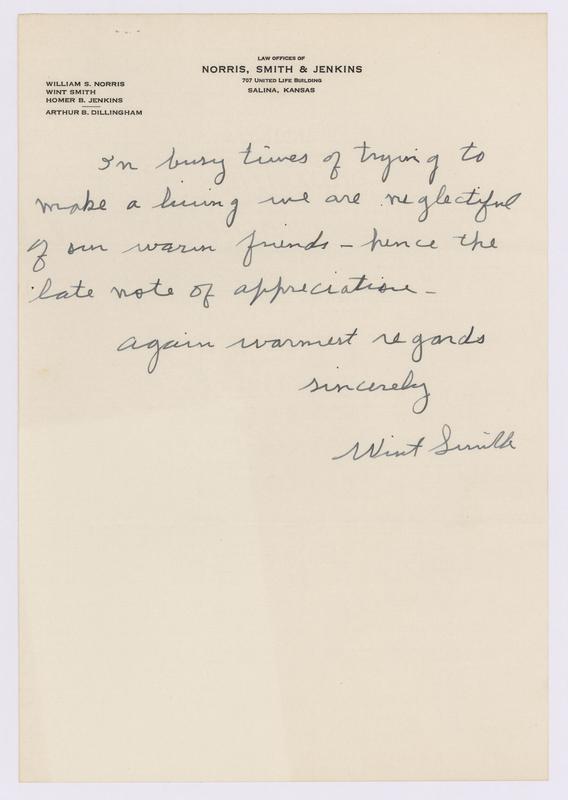 LAW OFFICES OF
NORRIS, SMITH & JENKINS
707 UNITED LIFE BUILDING
SALINA, KANSAS
WILLIAM S. NORRIS
WINT SMITH
HOMER B. JENKINS
ARTHUR B. DILLINGHAM
In busy times of trying to
make a living we are neglectful
of our warm friends - hence the
late note of appreciation -
again warmest regards
sincerely
Wint Smith